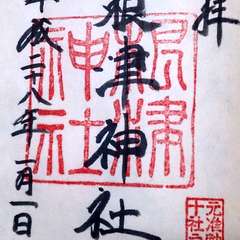 拝
根津神社
平成二十八年一月一日
根津
神社
元准勅
十社之